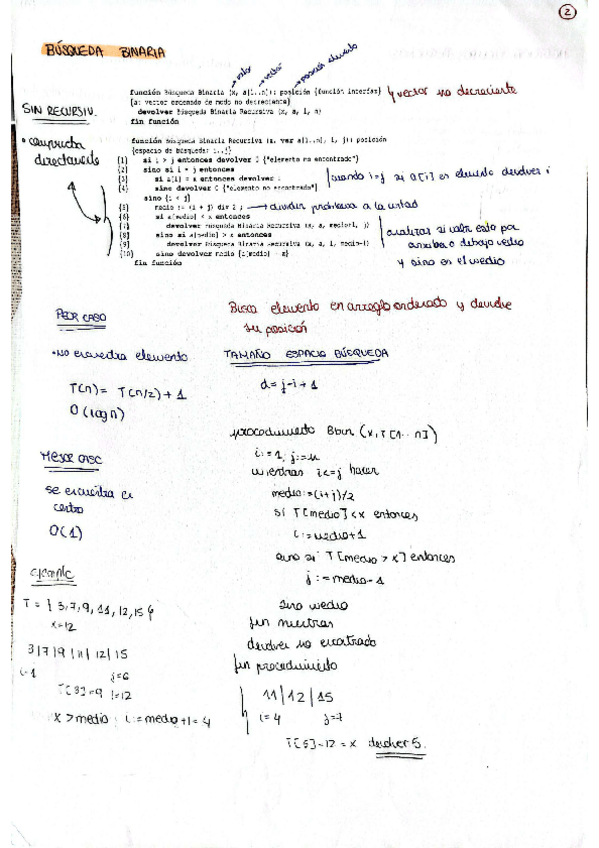 2
BÚSQUEDA BINARIA
valor
vector
posición elemento
función Búsqueda Binaria (x, a[1..n]): posición {función interfaz}
y vector no decreciente
{a: vector ordenado de modo no decreciente}
devolver Búsqueda Binaria Recursiva (x, a, 1, n)
fin función
SIN RECURSIV.
· comprueba
directamente
función Búsqueda Binaria Recursiva (x, var a[1..n], i, j): posición
{espacio de búsqueda: i..j}
{1} si i > j entonces devolver 0 {"elemento no encontrado"}
{2} sino si i = j entonces
{3} si a[i] = x entonces devolver i
{4} sino devolver 0 {"elemento no encontrado"}
cuando i=j si a[i] es elemento devolver i
sino {i < j}
{5} medio := (i + j) div 2 ;
dividir problema a la mitad
{6} si a[medio] < x entonces
{7} devolver Búsqueda Binaria Recursiva (x, a, medio+1, j)
{8} sino si a[medio] > x entonces
{9} devolver Búsqueda Binaria Recursiva (x, a, i, medio-1)
{10} sino devolver medio {a[medio] = x}
fin función
analizar si valor esta por
arriba o debajo medio
y sino es el medio
Busca elemento en arreglo ordenado y devuelve
su posición
PEOR CASO
· No encuentra elemento
T(n) = T(n/2) + 1
O(log n)
TAMAÑO ESPACIO BÚSQUEDA
d = j-i+1
MEJOR CASO
se encuentra en
centro
O(1)
procedimiento Bbin (x, T[1..n])
i:=1; j:=n
mientras i<=j hacer
medio:=(i+j)/2
si T[medio]<x entonces
i:=medio+1
sino si T[medio > x] entonces
j:=medio-1
sino medio
fin mientras
devolver no encontrado
fin procedimiento
ejemplo
T = { 3,7,9, 11, 12, 15 }
x=12
3|7|9|11|12|15
i=1
j=6
T[3]=9 != 12
x > medio ; i:=medio+1=4
11|12|15
i=4
j=7
T[5]=12 = x devolver 5.